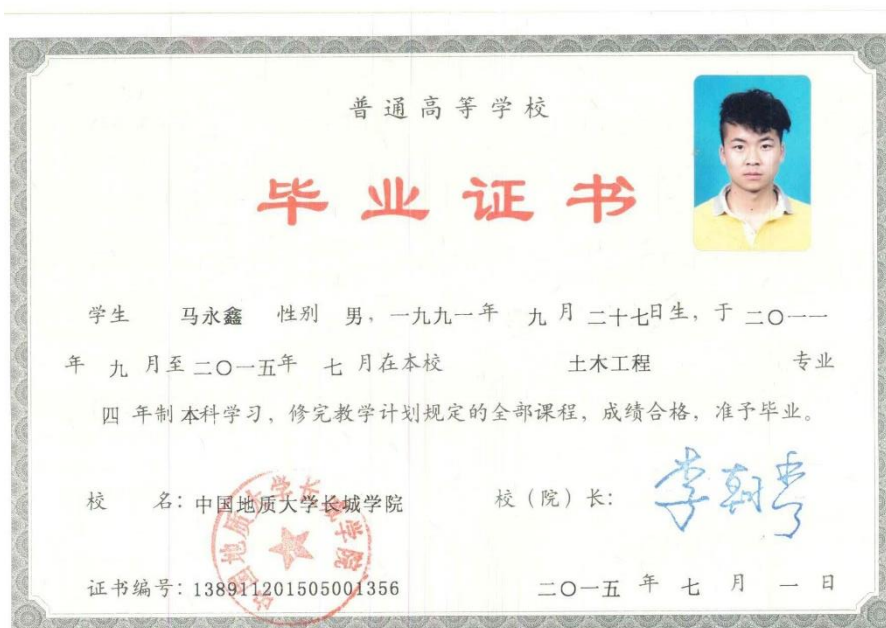 普通高等学校
毕业证书
学生 马永鑫 性别 男，一九九一年 九 月 二十七日生，于 二〇一一
年 九 月至 二〇一五年 七 月在本校 土木工程 专业
四 年制 本科学习，修完教学计划规定的全部课程，成绩合格，准予毕业。
校 名：中国地质大学长城学院 校（院）长：
中国地质大学长城学院
证书编号：138911201505001356 二〇一五 年 七 月 一 日